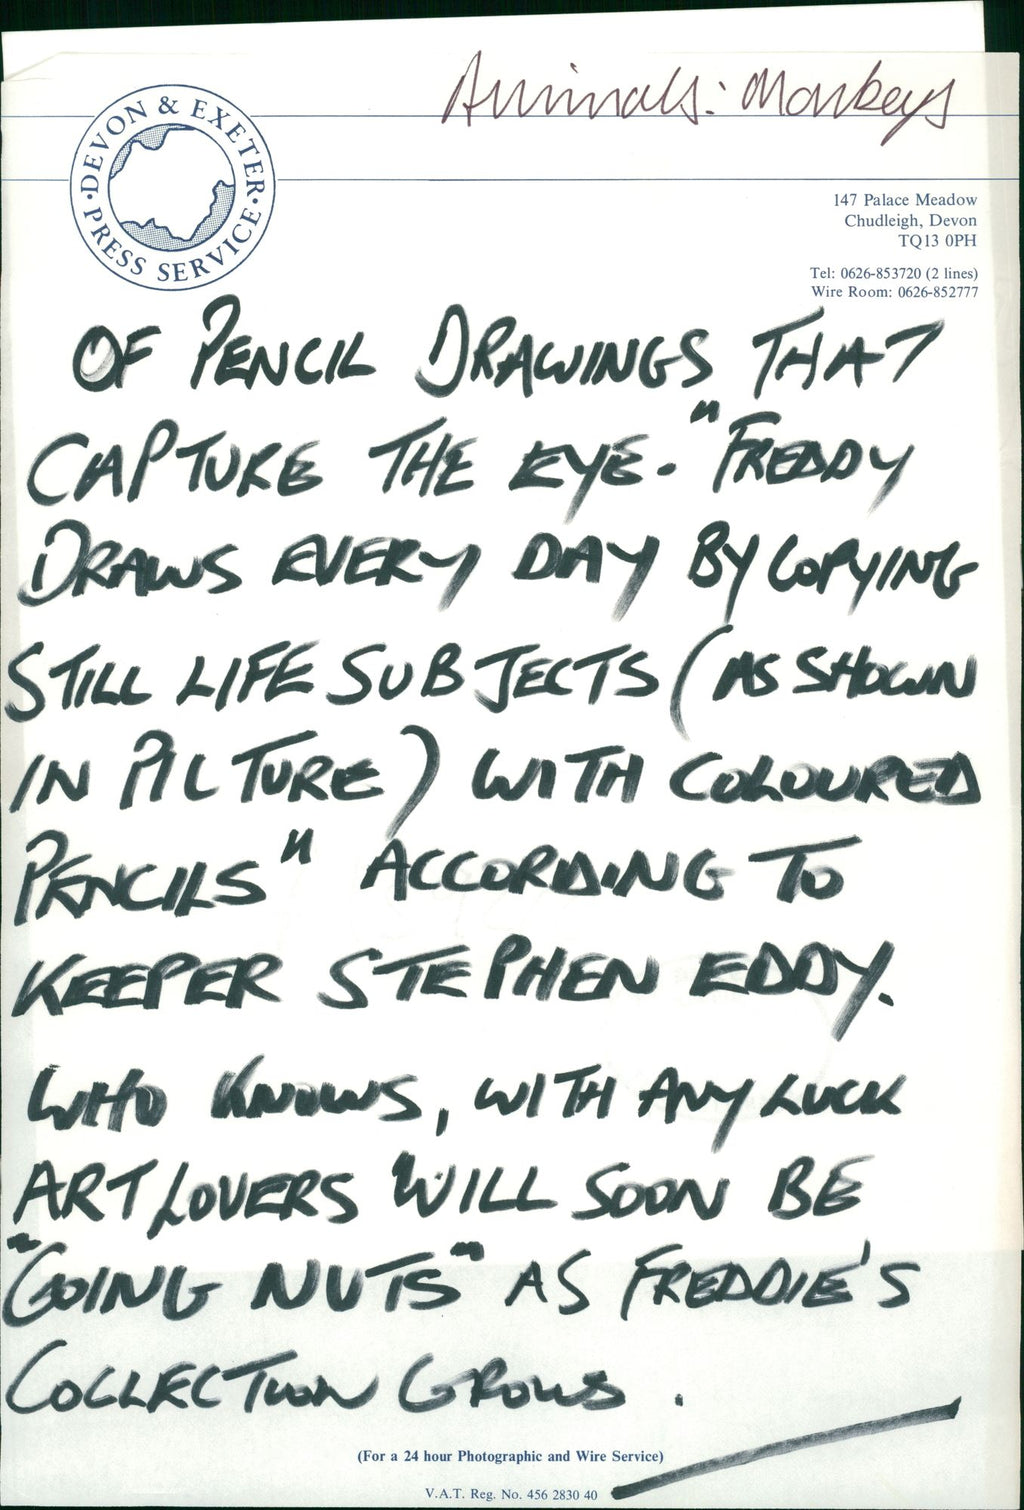 Animals: Monkeys
DEVON & EXETER
PRESS SERVICE
147 Palace Meadow
Chudleigh, Devon
TQ13 0PH
Tel: 0626-853720 (2 lines)
Wire Room: 0626-852777
OF PENCIL DRAWINGS THAT
CAPTURE THE EYE. "FREDDY
DRAWS EVERY DAY BY COPYING
STILL LIFE SUBJECTS (AS SHOWN
IN PICTURE) WITH COLOURED
PENCILS" ACCORDING TO
KEEPER STEPHEN EDDY.
WHO KNOWS, WITH ANY LUCK
ART LOVERS WILL SOON BE
"GOING NUTS" AS FREDDIE'S
COLLECTION GROWS.
(For a 24 hour Photographic and Wire Service)
V.A.T. Reg. No. 456 2830 40